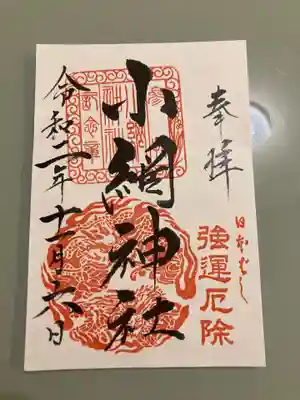 奉拝
日本ばし
強運厄除
小網神社
令和二年十一月六日